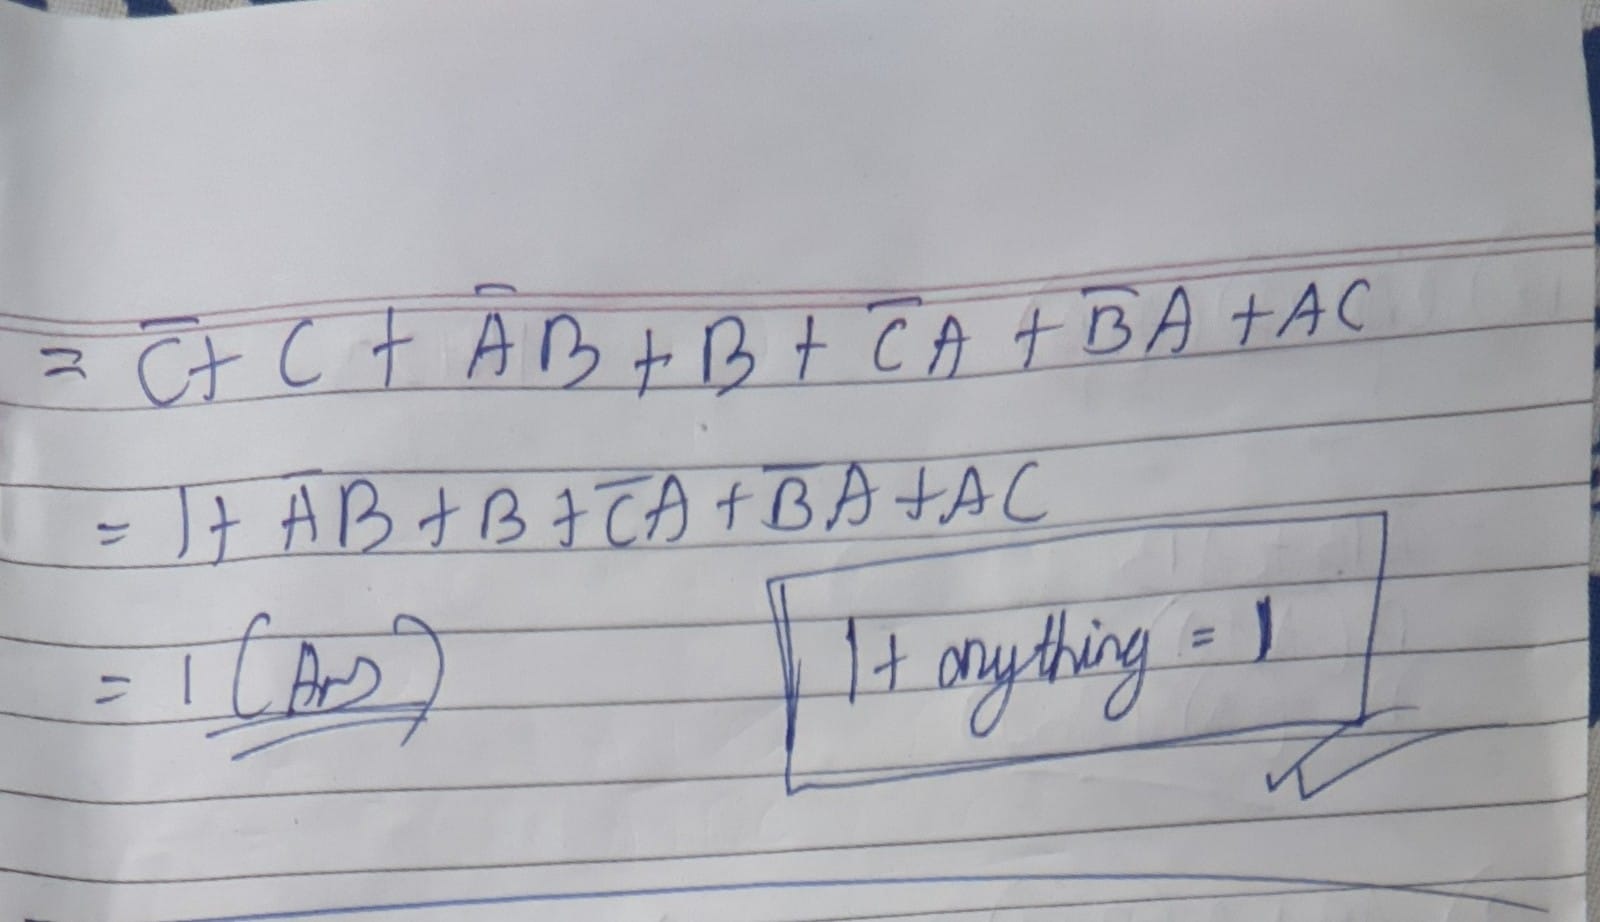 = C̅ + C + A̅B + B + C̅A + B̅A + AC
= 1 + A̅B + B + C̅A + B̅A + AC
= 1 (Ans)
1 + anything = 1